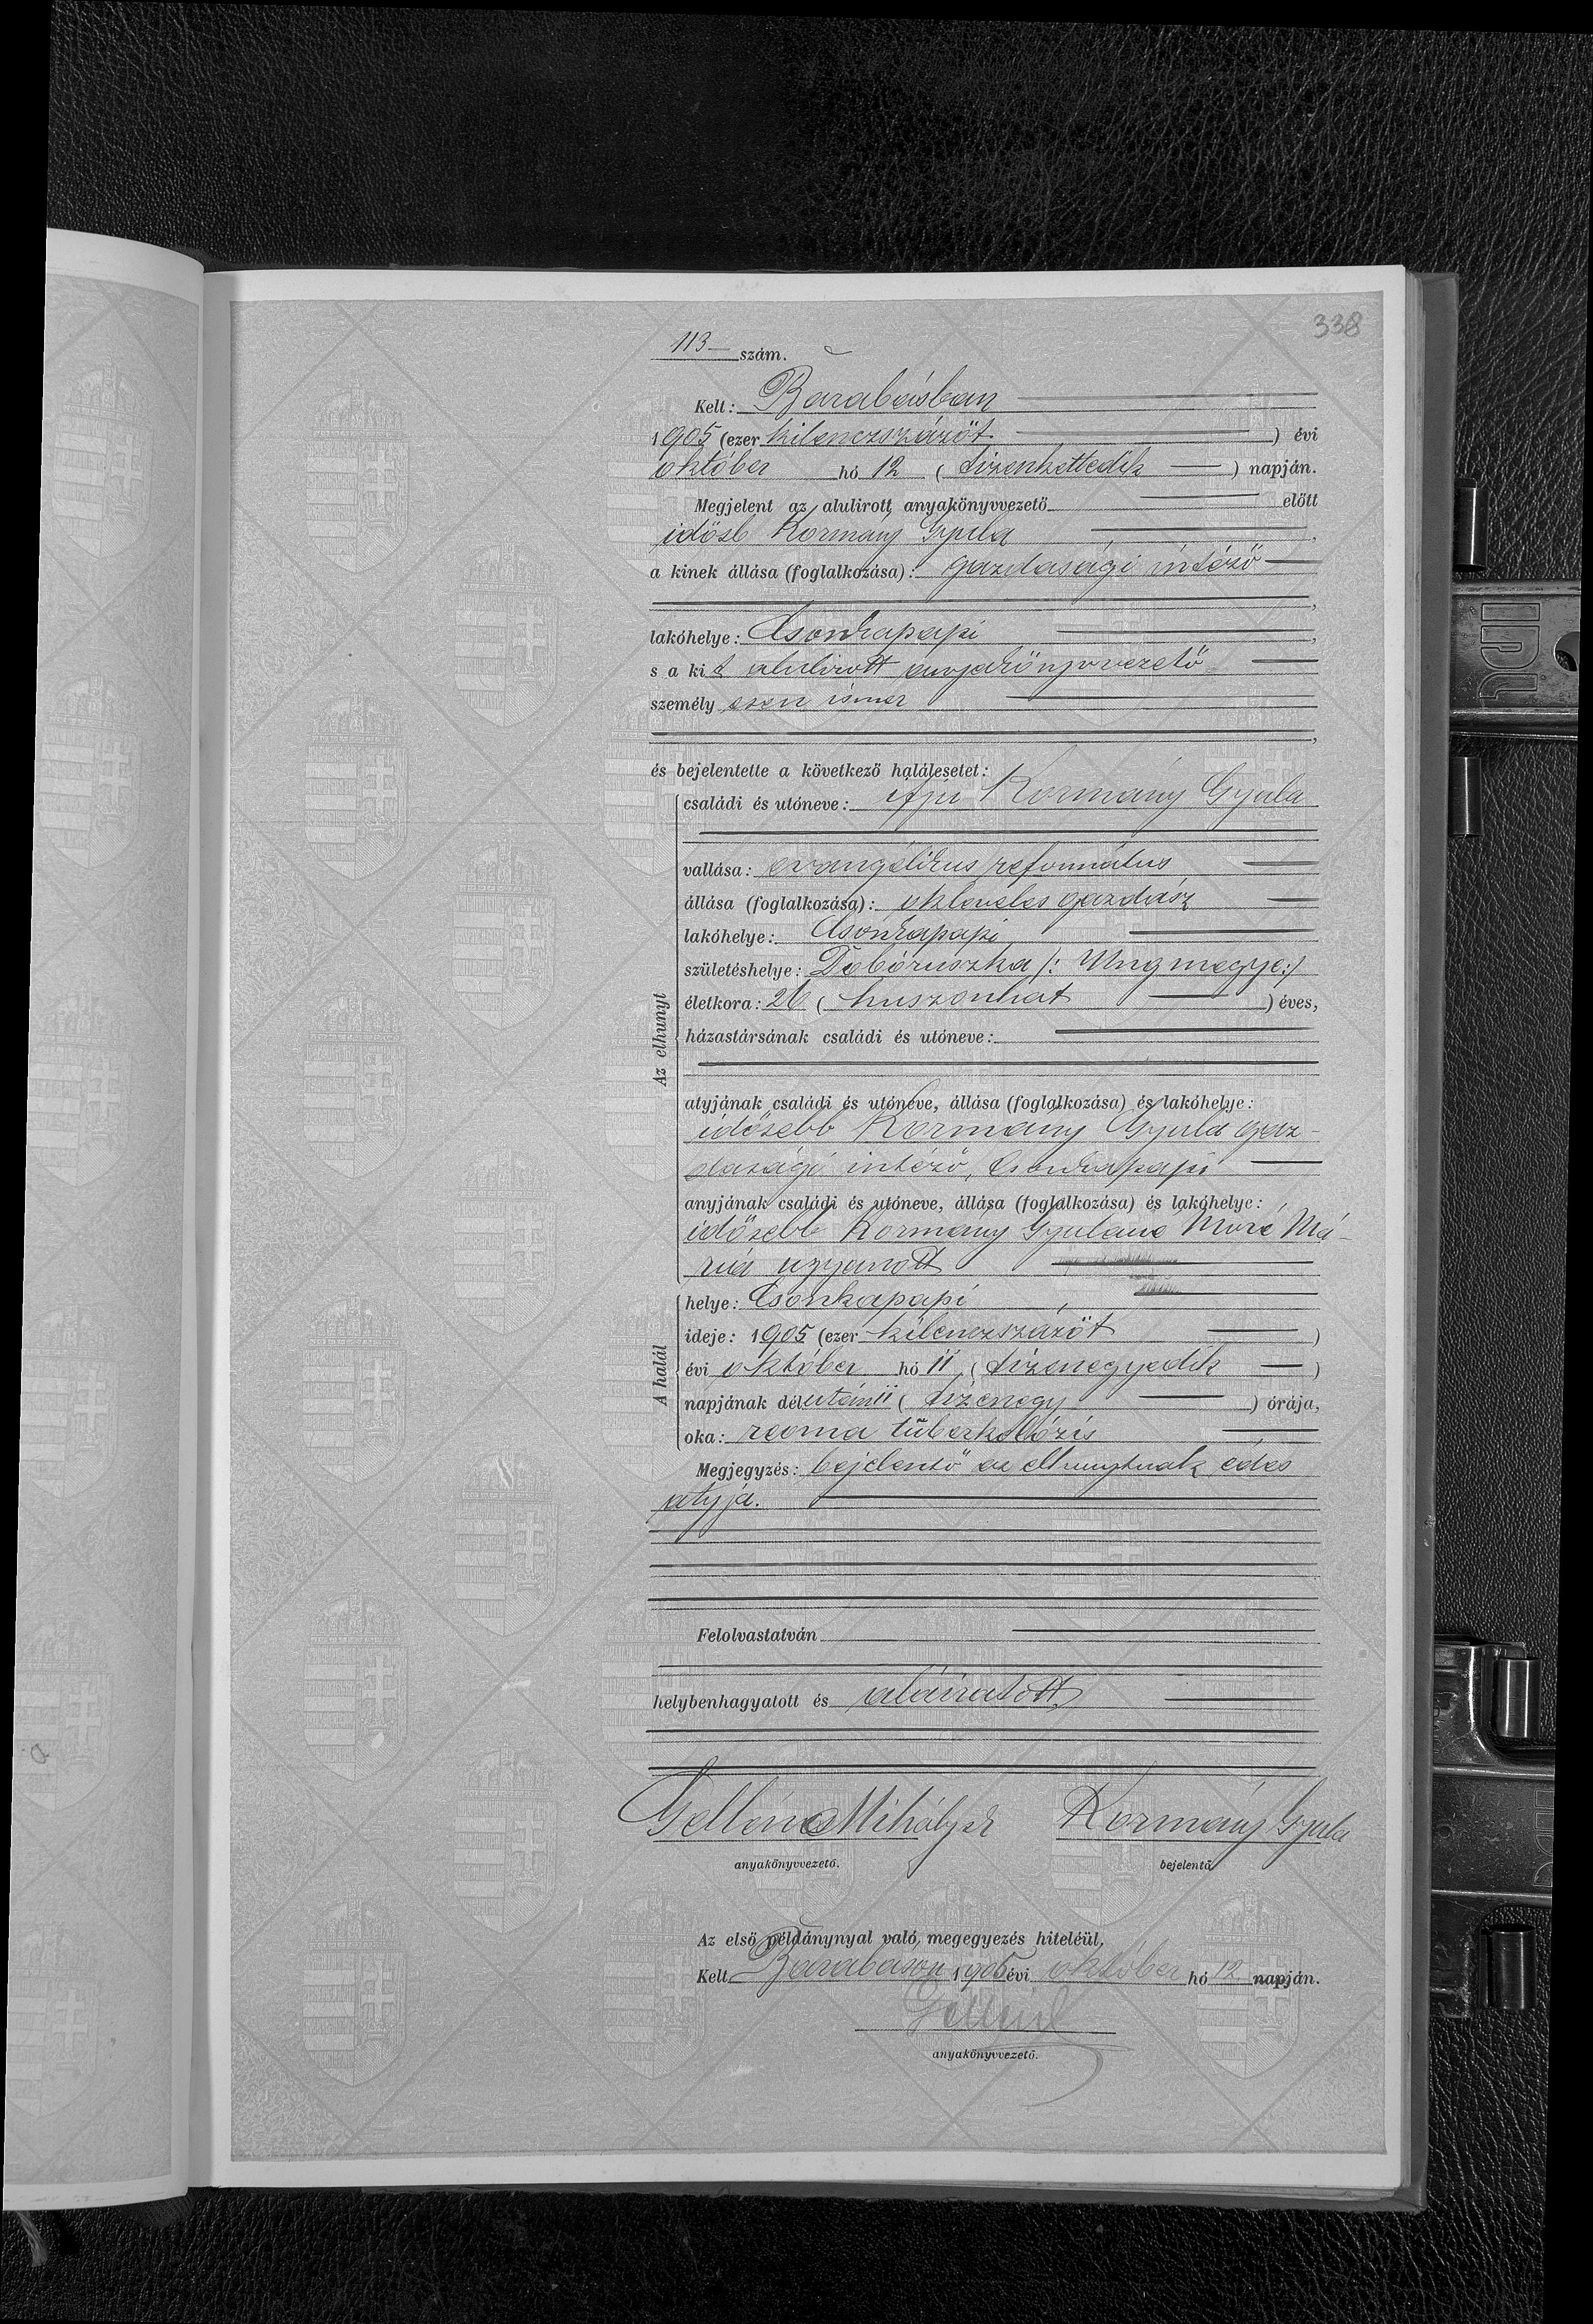 338
113 szám.
Kelt: Barabásban
1905 (ezer kilenczszázöt ) évi
október hó 12 ( tizenkettedik ) napján.
Megjelent az alulirott anyakönyvvezető előtt
idősb Kormány Gyula ,
a kinek állása (foglalkozása): gazdasági intéző
,
lakóhelye: Csonkapapi ,
s a kit alulirott anyakönyvvezető
személyesen ismer
,
és bejelentette a következő halálesetet:
Az elhunyt
családi és utóneve: ifju Kormány Gyula
vallása: evangélikus református
állása (foglalkozása): okleveles gazdász
lakóhelye: Csonkapapi
születéshelye: Dobóruszka /: Ung megye :/
életkora: 26 ( huszonhat ) éves,
házastársának családi és utóneve:
atyjának családi és utóneve, állása (foglalkozása) és lakóhelye:
idősebb Kormány Gyula gaz-
dasági intéző, Csonkapapi
anyjának családi és utóneve, állása (foglalkozása) és lakóhelye:
idősebb Kormány Gyuláné Moré Má-
ria ugyanott
A halál
helye: Csonkapapi ,
ideje: 1905 (ezer kilenczszázöt )
évi október hó 11 ( tizenegyedik )
napjának délután 11 ( tizenegy ) órája,
oka: tüberkolózis
Megjegyzés: bejelentő az elhunytnak édes
atyja.
Felolvastatván
helybenhagyatott és aláiratott.
Gellén Mihály Kormány Gyula
anyakönyvvezető. bejelentő
Az első példánynyal való megegyezés hiteléül,
Kelt Barabáson 1905 évi október hó 12 napján.
anyakönyvvezető.